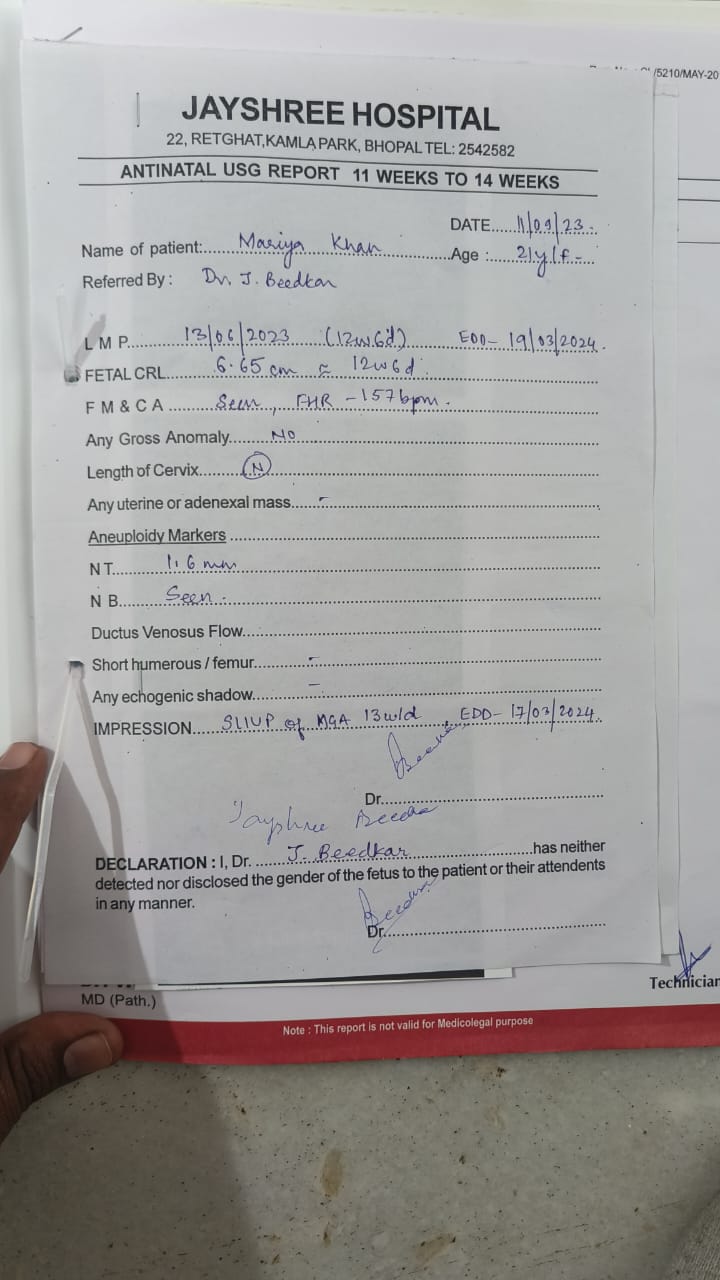 /5210/MAY-20
JAYSHREE HOSPITAL
22, RETGHAT,KAMLA PARK, BHOPAL TEL: 2542582
ANTINATAL USG REPORT 11 WEEKS TO 14 WEEKS
DATE.....11/09/23.
Name of patient:......Mariya Khan..........Age :.....21y/f
Referred By : Dr. J. Beedkar
L M P..........13/06/2023 (12w6d) EDD- 19/03/2024.
FETAL CRL.........6.65 cm ≈ 12w6d.
F M & C A .........Seen, FHR -157bpm.
Any Gross Anomaly.........No
Length of Cervix.........N
Any uterine or adenexal mass......-
Aneuploidy Markers
N T.........1.6 mm
N B.........Seen.
Ductus Venosus Flow....
Short humerous / femur.........-
Any echogenic shadow.........-
IMPRESSION......SLIUP of MGA 13w1d, EDD- 17/03/2024.
Dr..........
Jayshree
DECLARATION : I, Dr. .......J. Beedkar..........has neither
detected nor disclosed the gender of the fetus to the patient or their attendents
in any manner.
Dr..........
Technician
MD (Path.)
Note : This report is not valid for Medicolegal purpose